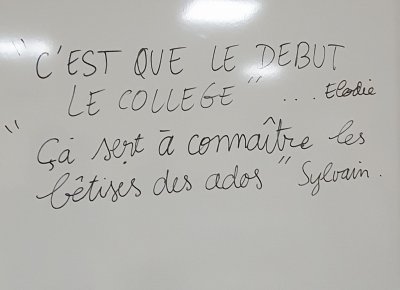 "C'EST QUE LE DEBUT
LE COLLEGE" ... Elodie
"Ça sert à connaître les
bêtises des ados" Sylvain.